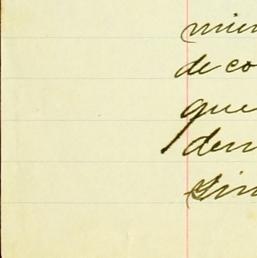 mien
de co
que
den
Gin